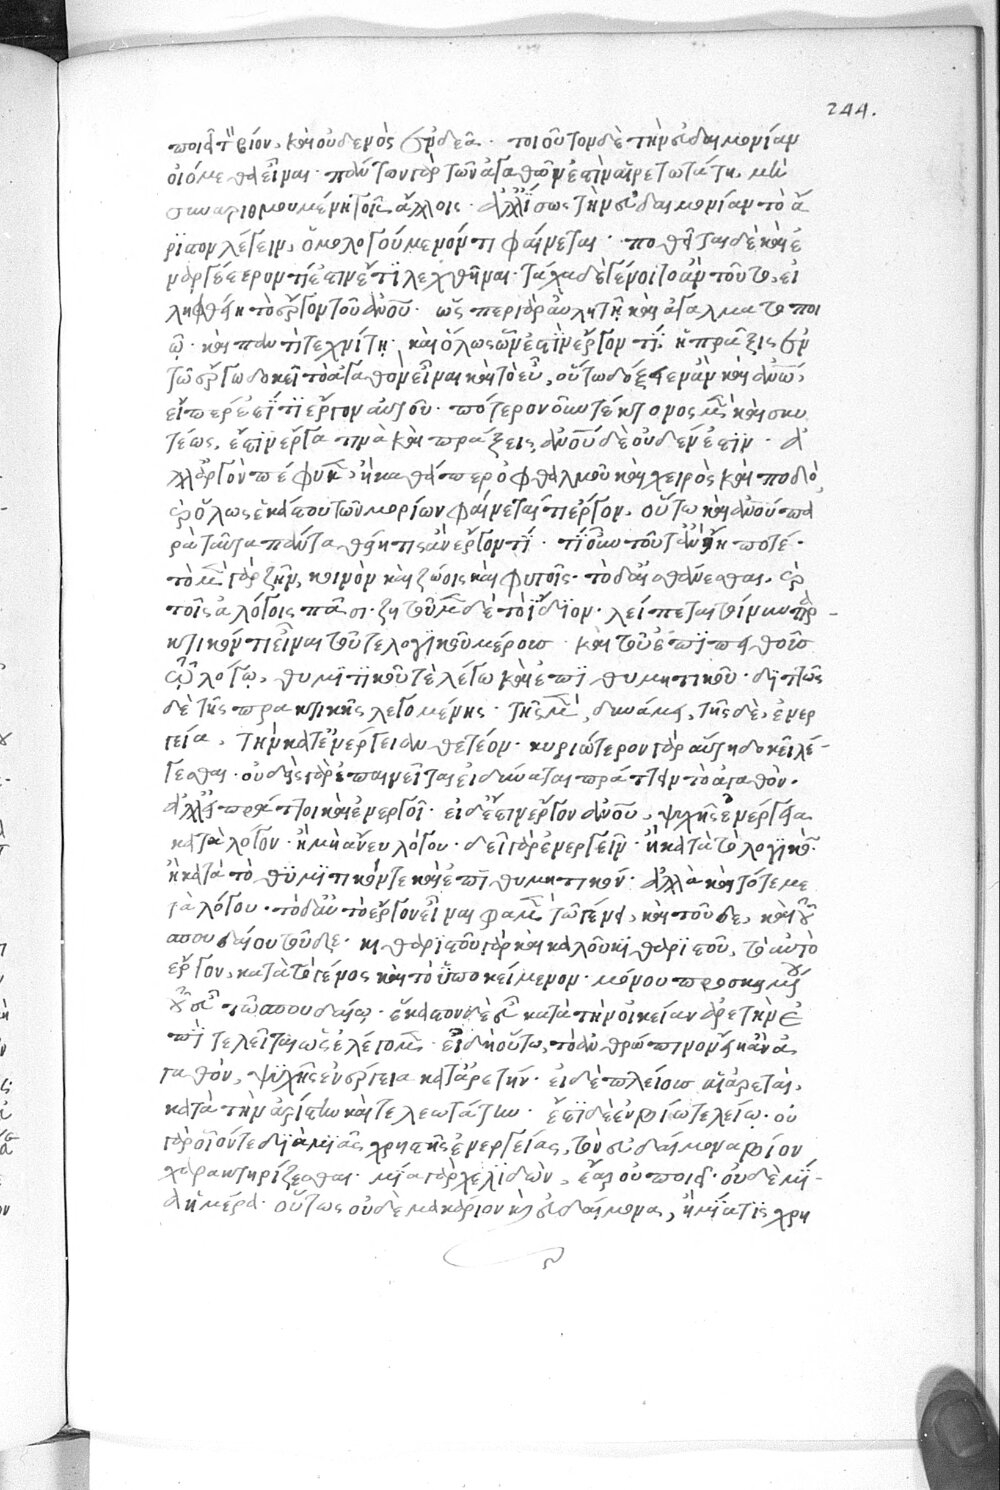 244.
ποιεῖ τὸν βίον, καὶ οὐδενὸς ἐνδεᾶ. τοιοῦτον δὲ τὴν εὐδαιμονίαν
οἰόμεθα εἶναι. πάντων γὰρ τῶν ἀγαθῶν ἐστὶν αἱρετωτάτη, μὴ
συναριθμουμένη τοῖς ἄλλοις. ἀλλ' ἴσως τὴν εὐδαιμονίαν τὸ ἄ
ριστον λέγειν, ὁμολογούμενόν τι φαίνεται. ποθεῖται δὲ καὶ ἐ
ναργέστερον τί ἐστιν ἔτι λεχθῆναι. τάχα δὲ γένοιτο ἂν τοῦτο, εἰ
ληφθείη τὸ ἔργον τοῦ ἀνου. ὡς περ γὰρ αὐλητῇ καὶ ἀγαλματοποι
ῷ. καὶ παντὶ τεχνίτῃ. καὶ ὅλως ὧν ἐστὶν ἔργον τί. ἢ πρᾶξις ἐν
τῷ ἔργῳ δοκεῖ τὸ ἀγαθὸν εἶναι καὶ τὸ εὖ, οὕτω δόξειεν ἂν καὶ ἀνῳ,
εἴπερ ἐστί τι ἔργον αὐτοῦ. πότερον οὖν τέκτονος μὲν καὶ σκυ
τέως, ἐστὶν ἔργα τινὰ καὶ πράξεις, ἀνου δὲ οὐδέν ἐστιν. ἀ
λλ' ἀργὸν πέφυκεν, ἢ καθάπερ ὀφθαλμοῦ καὶ χειρὸς καὶ ποδὸς
καὶ ὅλως ἑκάστου τῶν μορίων φαίνεταί τι ἔργον, οὕτω καὶ ἀνου πα
ρὰ ταῦτα πάντα θείη τις ἂν ἔργον τί. τί οὖν τοῦτ' ἂν εἴη ποτέ.
τὸ μὲν γὰρ ζῆν, κοινὸν καὶ ζώοις καὶ φυτοῖς. τὸ δ' αἰσθάνεσθαι, καὶ
τοῖς ἀλόγοις πᾶσι. ζητοῦμεν δὲ τὸ ἴδιον. λείπεται τοίνυν πρα-
κτικόν τι εἶναι τοῦ τε λογικοῦ μέρους καὶ τοῦ ἐπιπειθοῦς
τῷ λόγῳ, θυμιτικοῦ τὲ λέγω καὶ ἐπιθυμητικοῦ. διττῶς
δὲ τῆς πρακτικῆς λεγομένης. τῆς μὲν, δυνάμει, τῆς δὲ, ἐνερ
γεία. τὴν κατ' ἐνέργειαν θετέον. κυριώτερον γὰρ αὕτη δοκεῖ λέ-
γεσθαι. οὐδεὶς γὰρ ἐπαινεῖται εἰ δύναται πράττειν τὸ ἀγαθὸν.
ἀλλ' εἰ πράττοι καὶ ἐνεργοῖ. εἰ δέ ἐστιν ἔργον ἀνου, ψυχῆς ἐνέργεια
κατὰ λόγον. ἢ μὴ ἄνευ λόγου. δεῖ γὰρ ἐνεργεῖν. ἢ κατὰ τὸ λογικὸν.
ἢ κατὰ τὸ θυμιτικόν τε καὶ ἐπιθυμητικόν. ἀλλὰ καὶ τότε με
τὰ λόγου. τὸ δ' αὐτὸ ἔργον εἶναι φαμὲν τῷ γένει, καὶ τοῦδε, καὶ τοῦ
σπουδαίου τοῦδε. κιθαριστοῦ γὰρ καὶ καλοῦ κιθαριστοῦ, τὸ αὐτὸ
ἔργον, κατὰ τὸ γένος καὶ τὸ ὑποκείμενον. μόνου προσκειμένου
τοῦ εὖ τῷ σπουδαίῳ. ἕκαστον δὲ εὖ κατὰ τὴν οἰκείαν ἀρετὴν ἐ
πιτελεῖται ὡς ἐλέγομεν. εἰ δὴ οὕτω, τὸ ἀνθρώπινον εἴη ἂν ἀ
γαθὸν, ψυχῆς ἐνέργεια κατ' ἀρετήν. εἰ δὲ πλείους αἱ ἀρεταὶ,
κατὰ τὴν ἀρίστην καὶ τελεωτάτην. ἔτι δὲ ἐν βίω τελείῳ. οὐ
γὰρ οἷόν τε διὰ μιᾶς χρηστῆς ἐνεργείας, τὸν εὐδαίμονα βίον
χαρακτηρίζεσθαι. μία γὰρ χελιδὼν, ἔαρ οὐ ποιεῖ. οὐδὲ μί-
α ἡμέρα. οὕτως οὐδὲ μακάριον καὶ εὐδαίμονα, ἡ μία τίς χρη